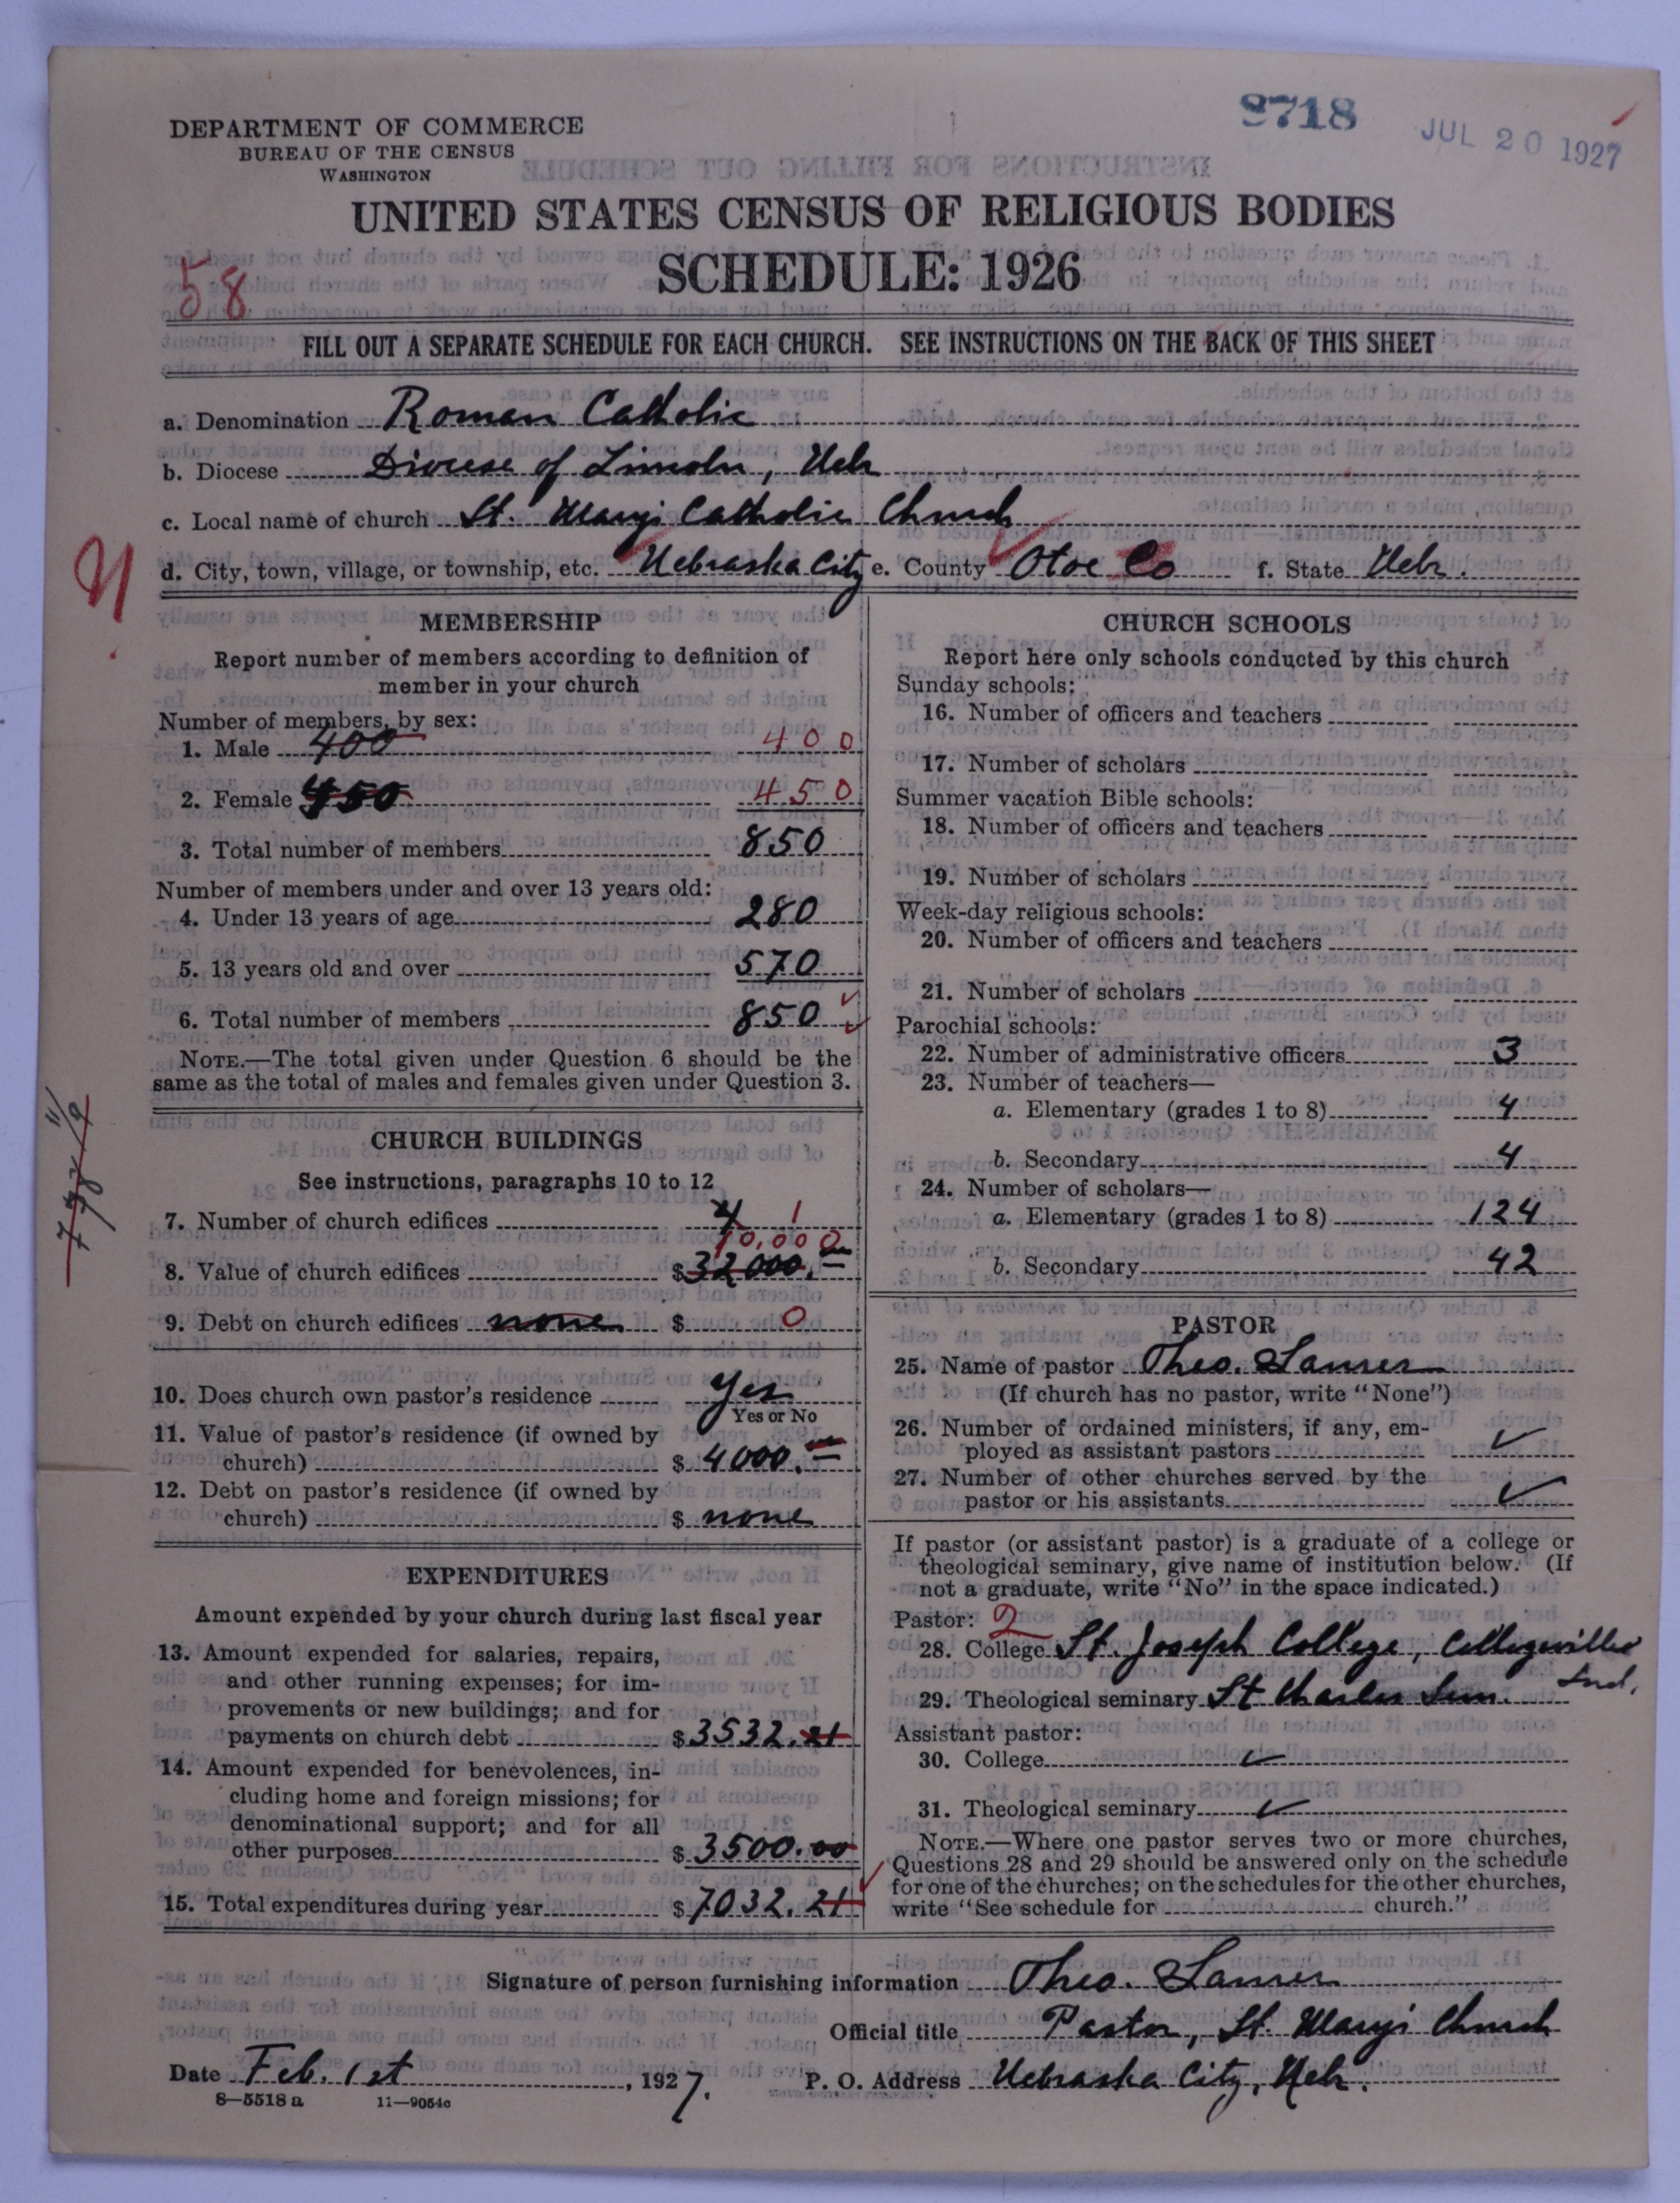 8718
JUL 20 1927
DEPARTMENT OF COMMERCE
BUREAU OF THE CENSUS
WASHINGTON
UNITED STATES CENSUS OF RELIGIOUS BODIES
SCHEDULE: 1926
58
FILL OUT A SEPARATE SCHEDULE FOR EACH CHURCH. SEE INSTRUCTIONS ON THE BACK OF THIS SHEET
a. Denomination Roman Catholic
b. Diocese Diocese of Lincoln, Neb
c. Local name of church St. Mary's Catholic Church
d. City, town, village, or township, etc. Nebraska City e. County Otoe Co f. State Nebr.
MEMBERSHIP
Report number of members according to definition of
member in your church
Number of members, by sex:
1. Male 400 400
2. Female 450 450
3. Total number of members 850
Number of members under and over 13 years old:
4. Under 13 years of age 280
5. 13 years old and over 570
6. Total number of members 850
NOTE.—The total given under Question 6 should be the
same as the total of males and females given under Question 3.
CHURCH BUILDINGS
See instructions, paragraphs 10 to 12
7. Number of church edifices 4 1
10,000
8. Value of church edifices $32000.
9. Debt on church edifices none $ 0
10. Does church own pastor's residence yes
Yes or No
11. Value of pastor's residence (if owned by
church) $ 4000.
12. Debt on pastor's residence (if owned by
church) $ none
EXPENDITURES
Amount expended by your church during last fiscal year
13. Amount expended for salaries, repairs,
and other running expenses; for im-
provements or new buildings; and for
payments on church debt $3532.21
14. Amount expended for benevolences, in-
cluding home and foreign missions; for
denominational support; and for all
other purposes $ 3500.00
15. Total expenditures during year $7032.21
CHURCH SCHOOLS
Report here only schools conducted by this church
Sunday schools:
16. Number of officers and teachers
17. Number of scholars
Summer vacation Bible schools:
18. Number of officers and teachers
19. Number of scholars
Week-day religious schools:
20. Number of officers and teachers
21. Number of scholars
Parochial schools:
22. Number of administrative officers 3
23. Number of teachers—
a. Elementary (grades 1 to 8) 4
b. Secondary 4
24. Number of scholars—
a. Elementary (grades 1 to 8) 124
b. Secondary 42
PASTOR
25. Name of pastor Theo.
(If church has no pastor, write "None")
26. Number of ordained ministers, if any, em-
ployed as assistant pastors
27. Number of other churches served by the
pastor or his assistants
If pastor (or assistant pastor) is a graduate of a college or
theological seminary, give name of institution below. (If
not a graduate, write "No" in the space indicated.)
Pastor: 2
28. College St. Joseph College, Collegeville
Ind.
29. Theological seminary St Charles Sem.
Assistant pastor:
30. College
31. Theological seminary
NOTE.—Where one pastor serves two or more churches,
Questions 28 and 29 should be answered only on the schedule
for one of the churches; on the schedules for the other churches,
write "See schedule for church."
Signature of person furnishing information Theo.
Official title Pastor, St. Mary's Church
Date Feb. 1st, 1927. P. O. Address Nebraska City, Neb.
8—5518 a 11—9054c